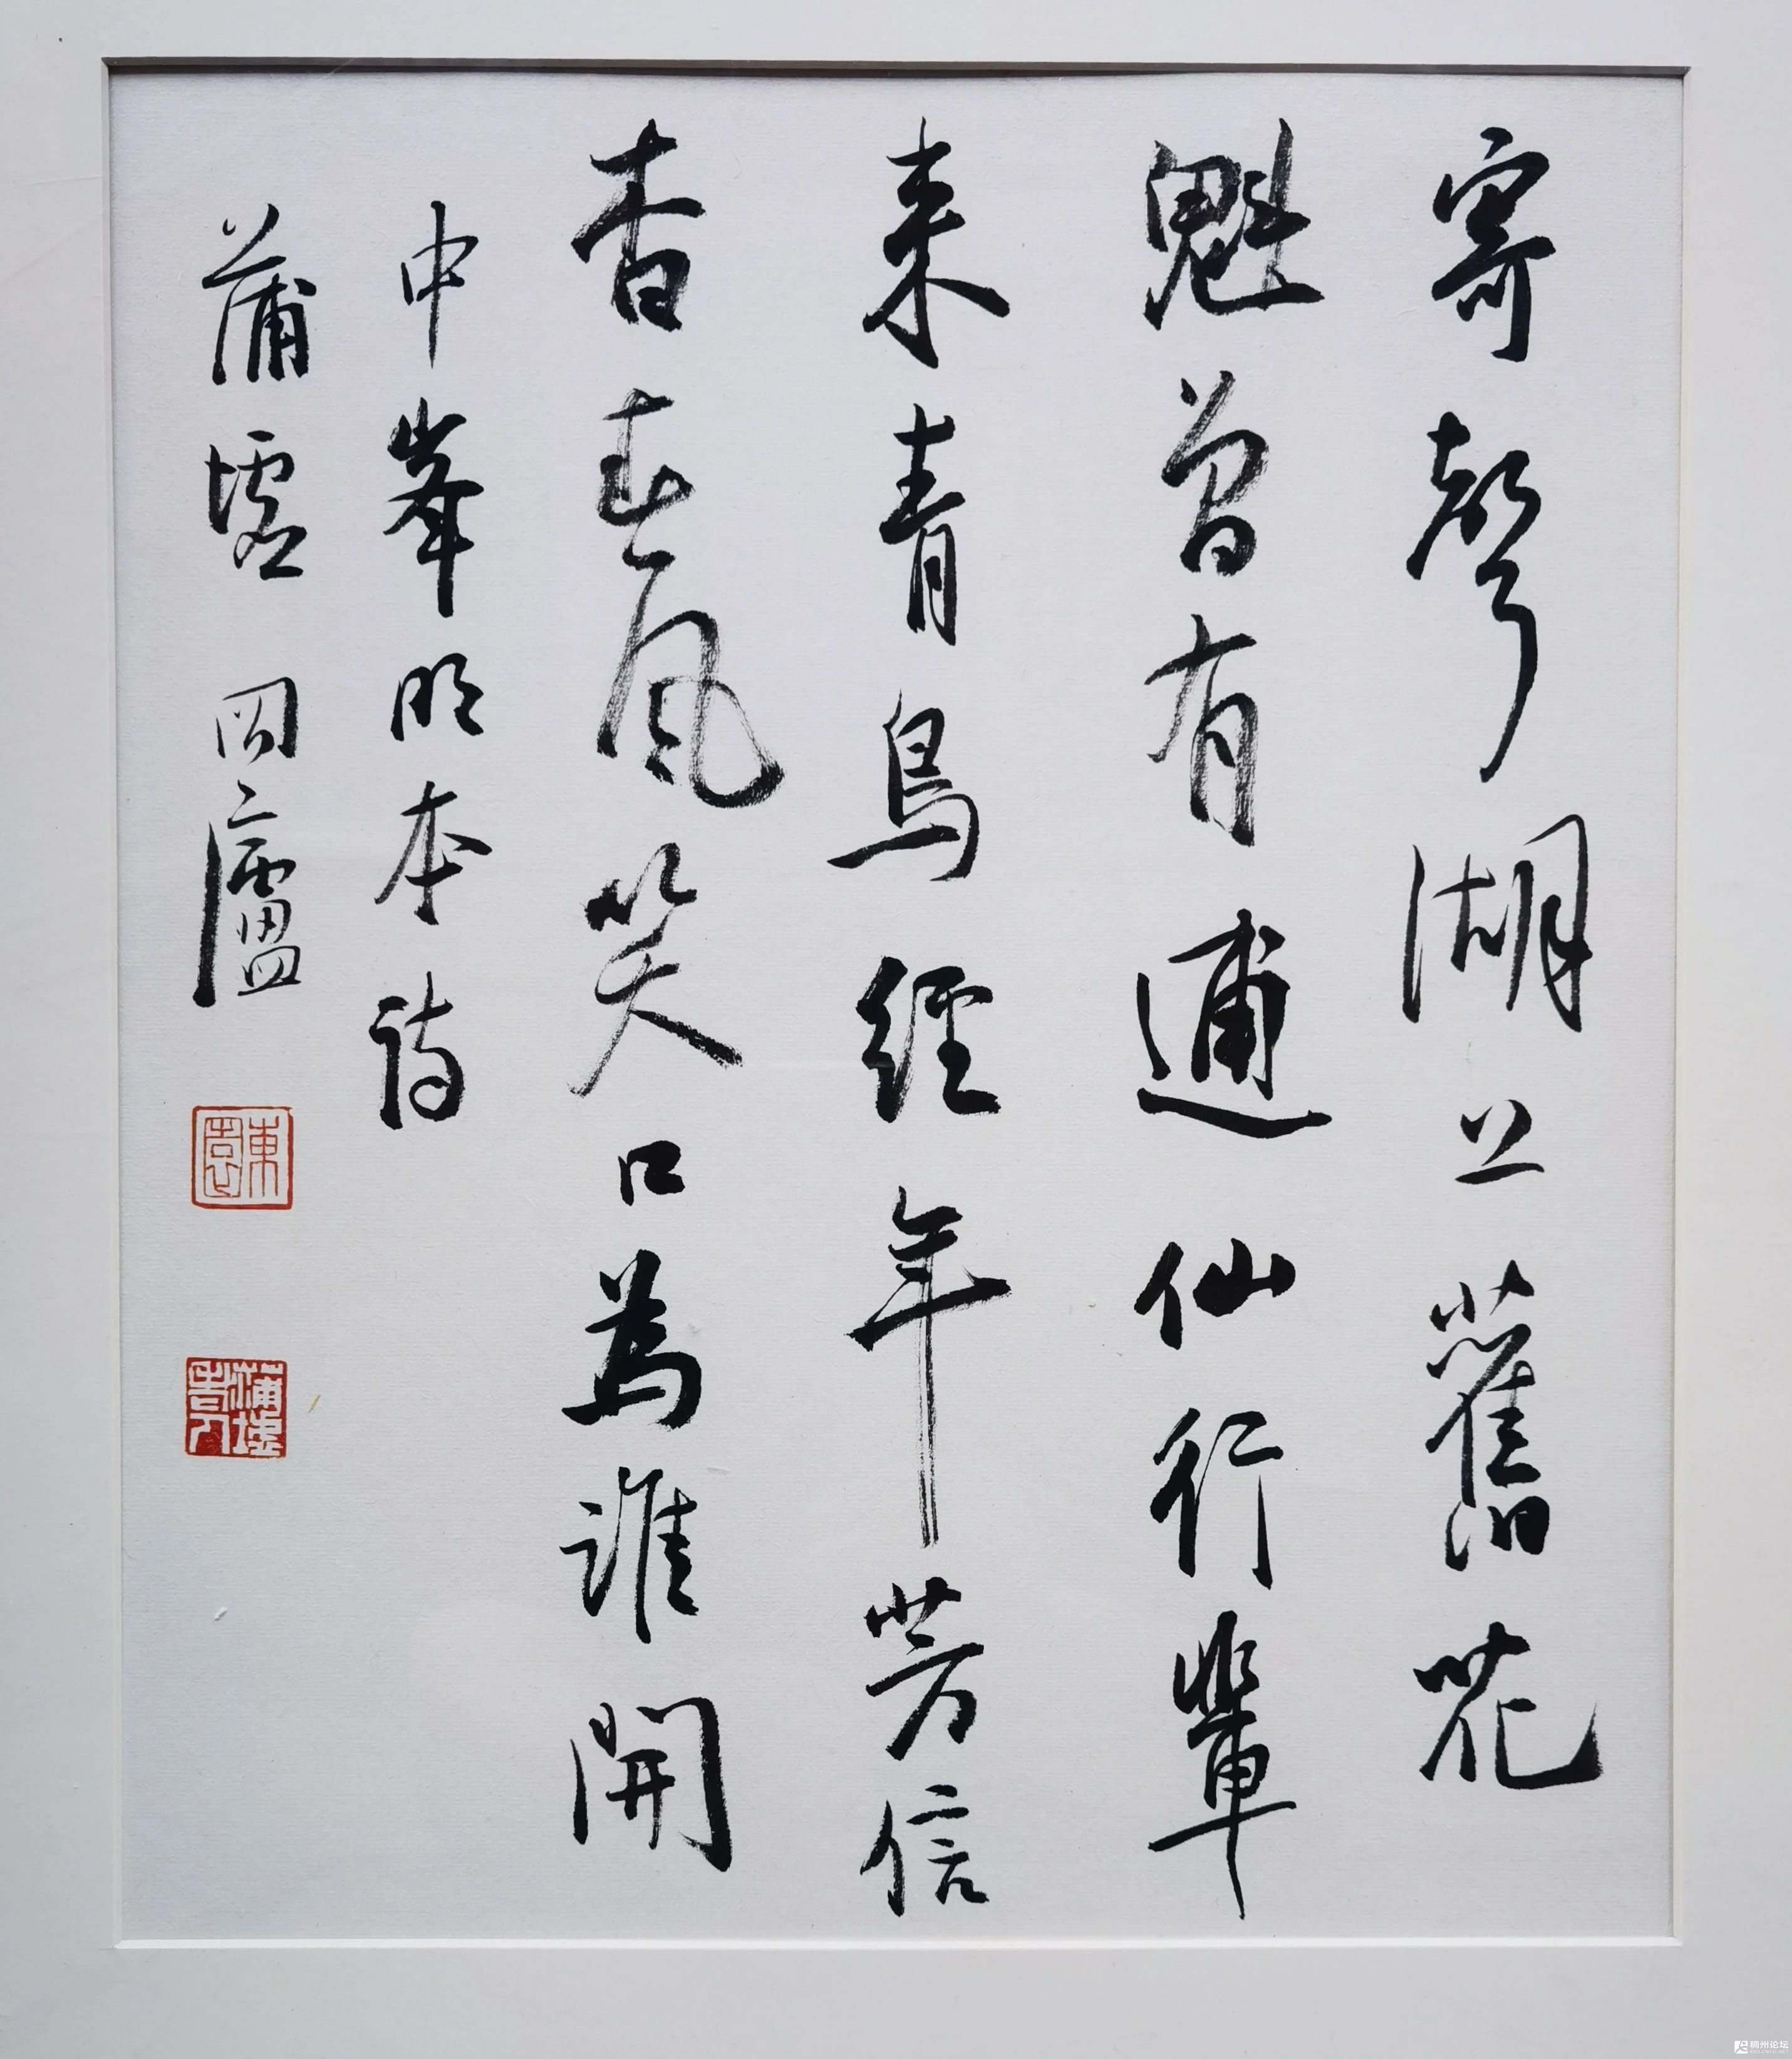 寄聲湖上舊花
魁曾有逋仙行輩
来青鳥經年芳信
杳春風笑口為誰開
中峯明本詩
蒲墟 冈廬
東園
蒲墟
稠州论坛